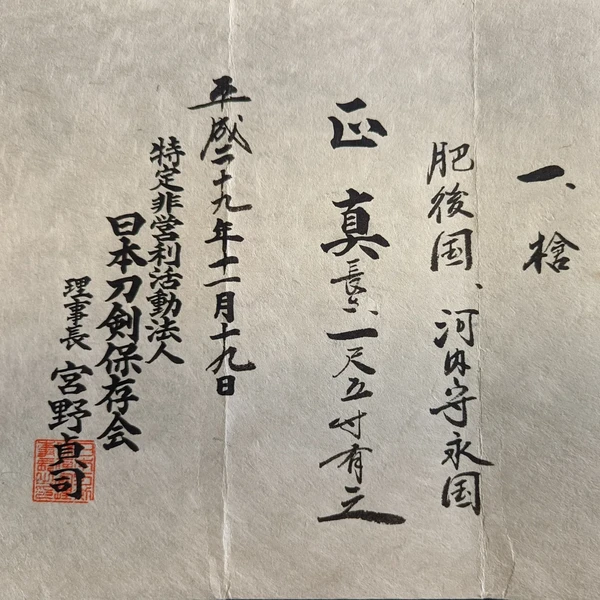 一、槍
肥後国、河内守永国
正真
長サ、一尺五寸有之
平成二十九年十一月十九日
特定非営利活動法人
日本刀剣保存会
理事長 宮野貞司